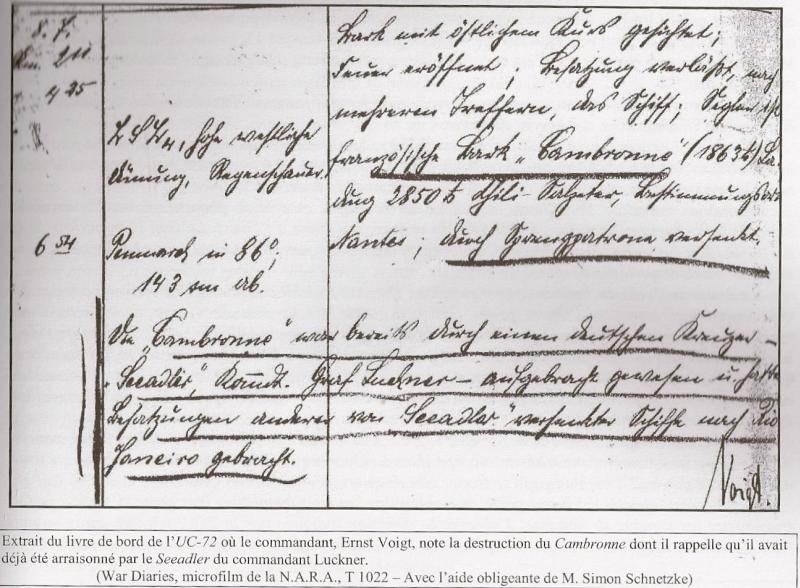 8. 7.
4 25
Bark mit östlichem Kurs gesichtet;
Feuer eröffnet; Besatzung verläßt, nach
mehreren Treffern, das Schiff; Segler ist
französische Bark „Cambronne“ (1863 t) La-
dung 2850 t Chili-Salpeter, Bestimmungsort
Nantes; durch Sprengpatrone versenkt.
hohe westliche
Dünung, Regenschauer.
6 54
Penmarch in 86°;
143 sm ab.
Die „Cambronne“ war bereits durch einen deutschen Kreuzer –
„Seeadler“, Komdt. Graf Luckner – aufgebracht gewesen u. hatte
Besatzungen anderer von „Seeadler“ versenkter Schiffe nach Rio
Janeiro gebracht.
Voigt.
Extrait du livre de bord de l'UC-72 où le commandant, Ernst Voigt, note la destruction du Cambronne dont il rappelle qu'il avait
déjà été arraisonné par le Seeadler du commandant Luckner.
(War Diaries, microfilm de la N.A.R.A., T 1022 – Avec l'aide obligeante de M. Simon Schnetzke)